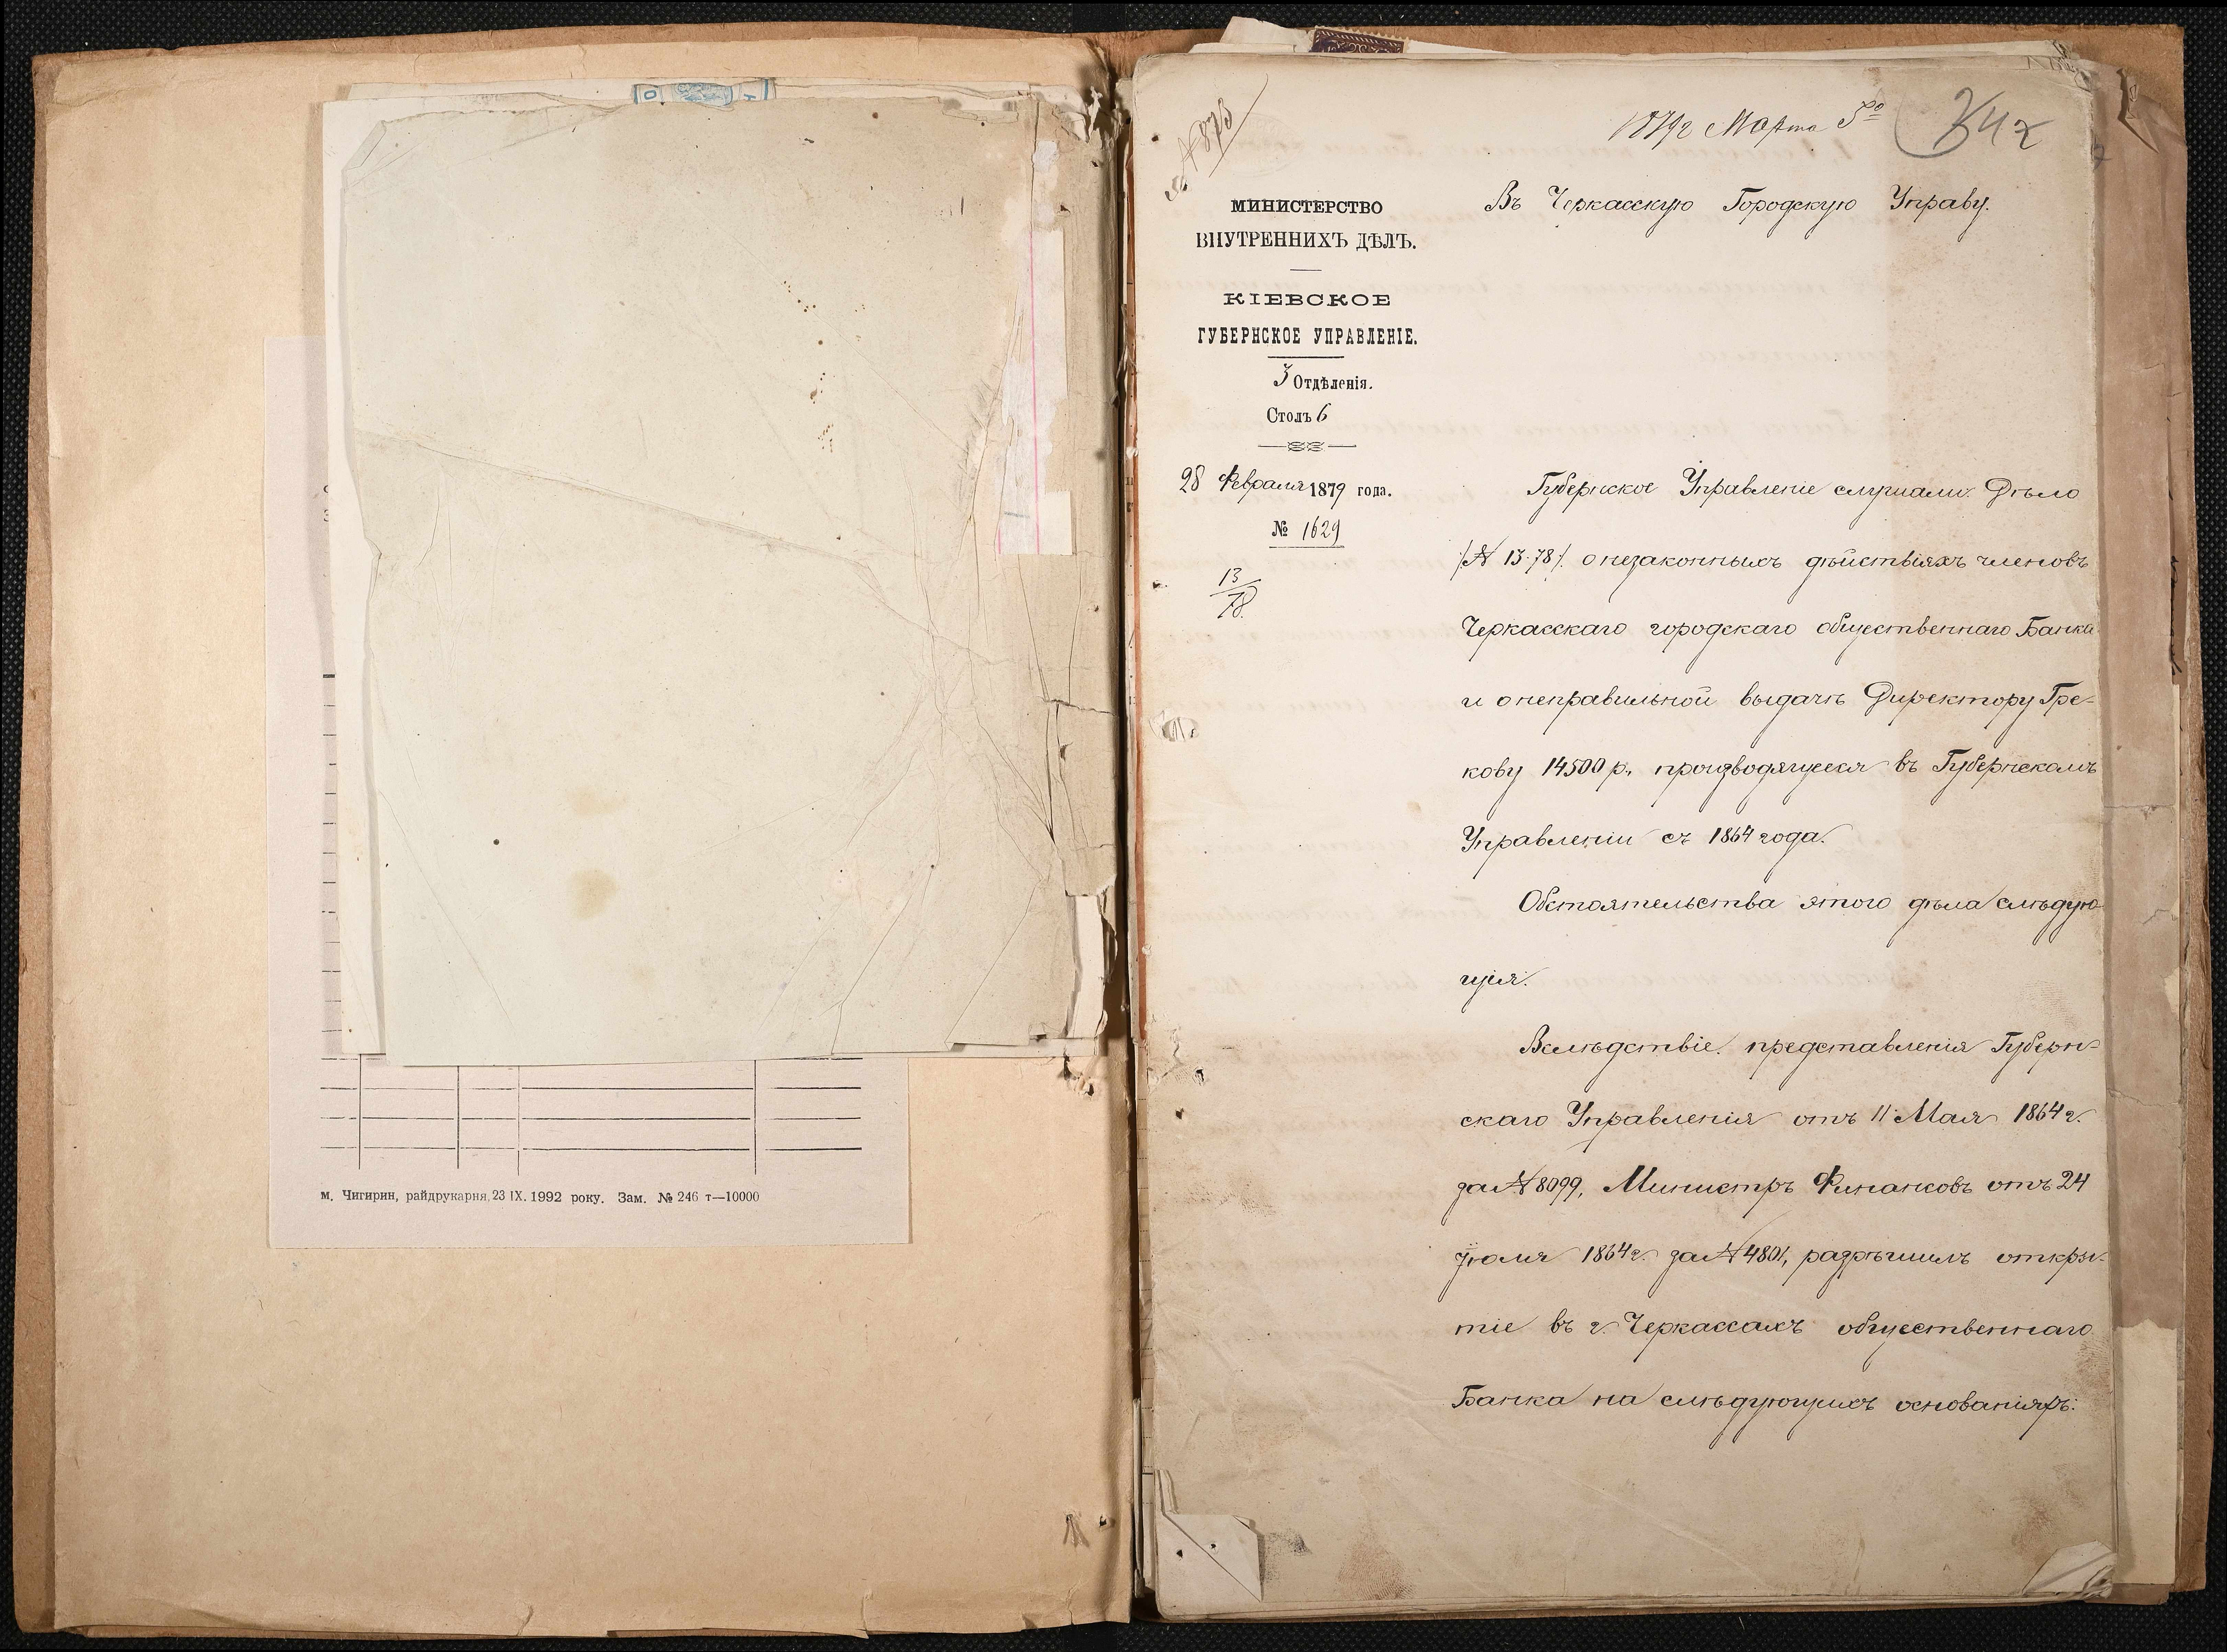 м. Чигирин, райдрукарня, 23 IX. 1992 року. Зам. № 246 т—10000
№ 873
1879 г Марта 5го
МИНИСТЕРСТВО
ВНУТРЕННИХЪ ДѢЛЪ.
КІЕВСКОЕ
ГУБЕРНСКОЕ УПРАВЛЕНІЕ.
3 Отдѣленія.
Столъ 6
28 Февраля 1879 года.
№ 1629
13/78.
Въ Черкасскую Городскую Управу.
Губернское Управленіе слушали: Дѣло
/№ 13-78/. о незаконныхъ дѣйствіяхъ членовъ
Черкасскаго городскаго общественнаго Банка
и о неправильной выдачѣ Директору Гре-
кову 14500 р., производящееся въ Губернскомъ
Управленіи съ 1864 года.
Обстоятельства этого дѣла слѣдую-
щія:
Вслѣдствіе представленія Губерн-
скаго Управленія отъ 11 Мая 1864 г.
за № 8099, Министръ Финансовъ отъ 24
Іюля 1864 г. за № 4801, разрѣшилъ откры-
тіе въ г. Черкассахъ общественнаго
Банка на слѣдующихъ основаніяхъ: